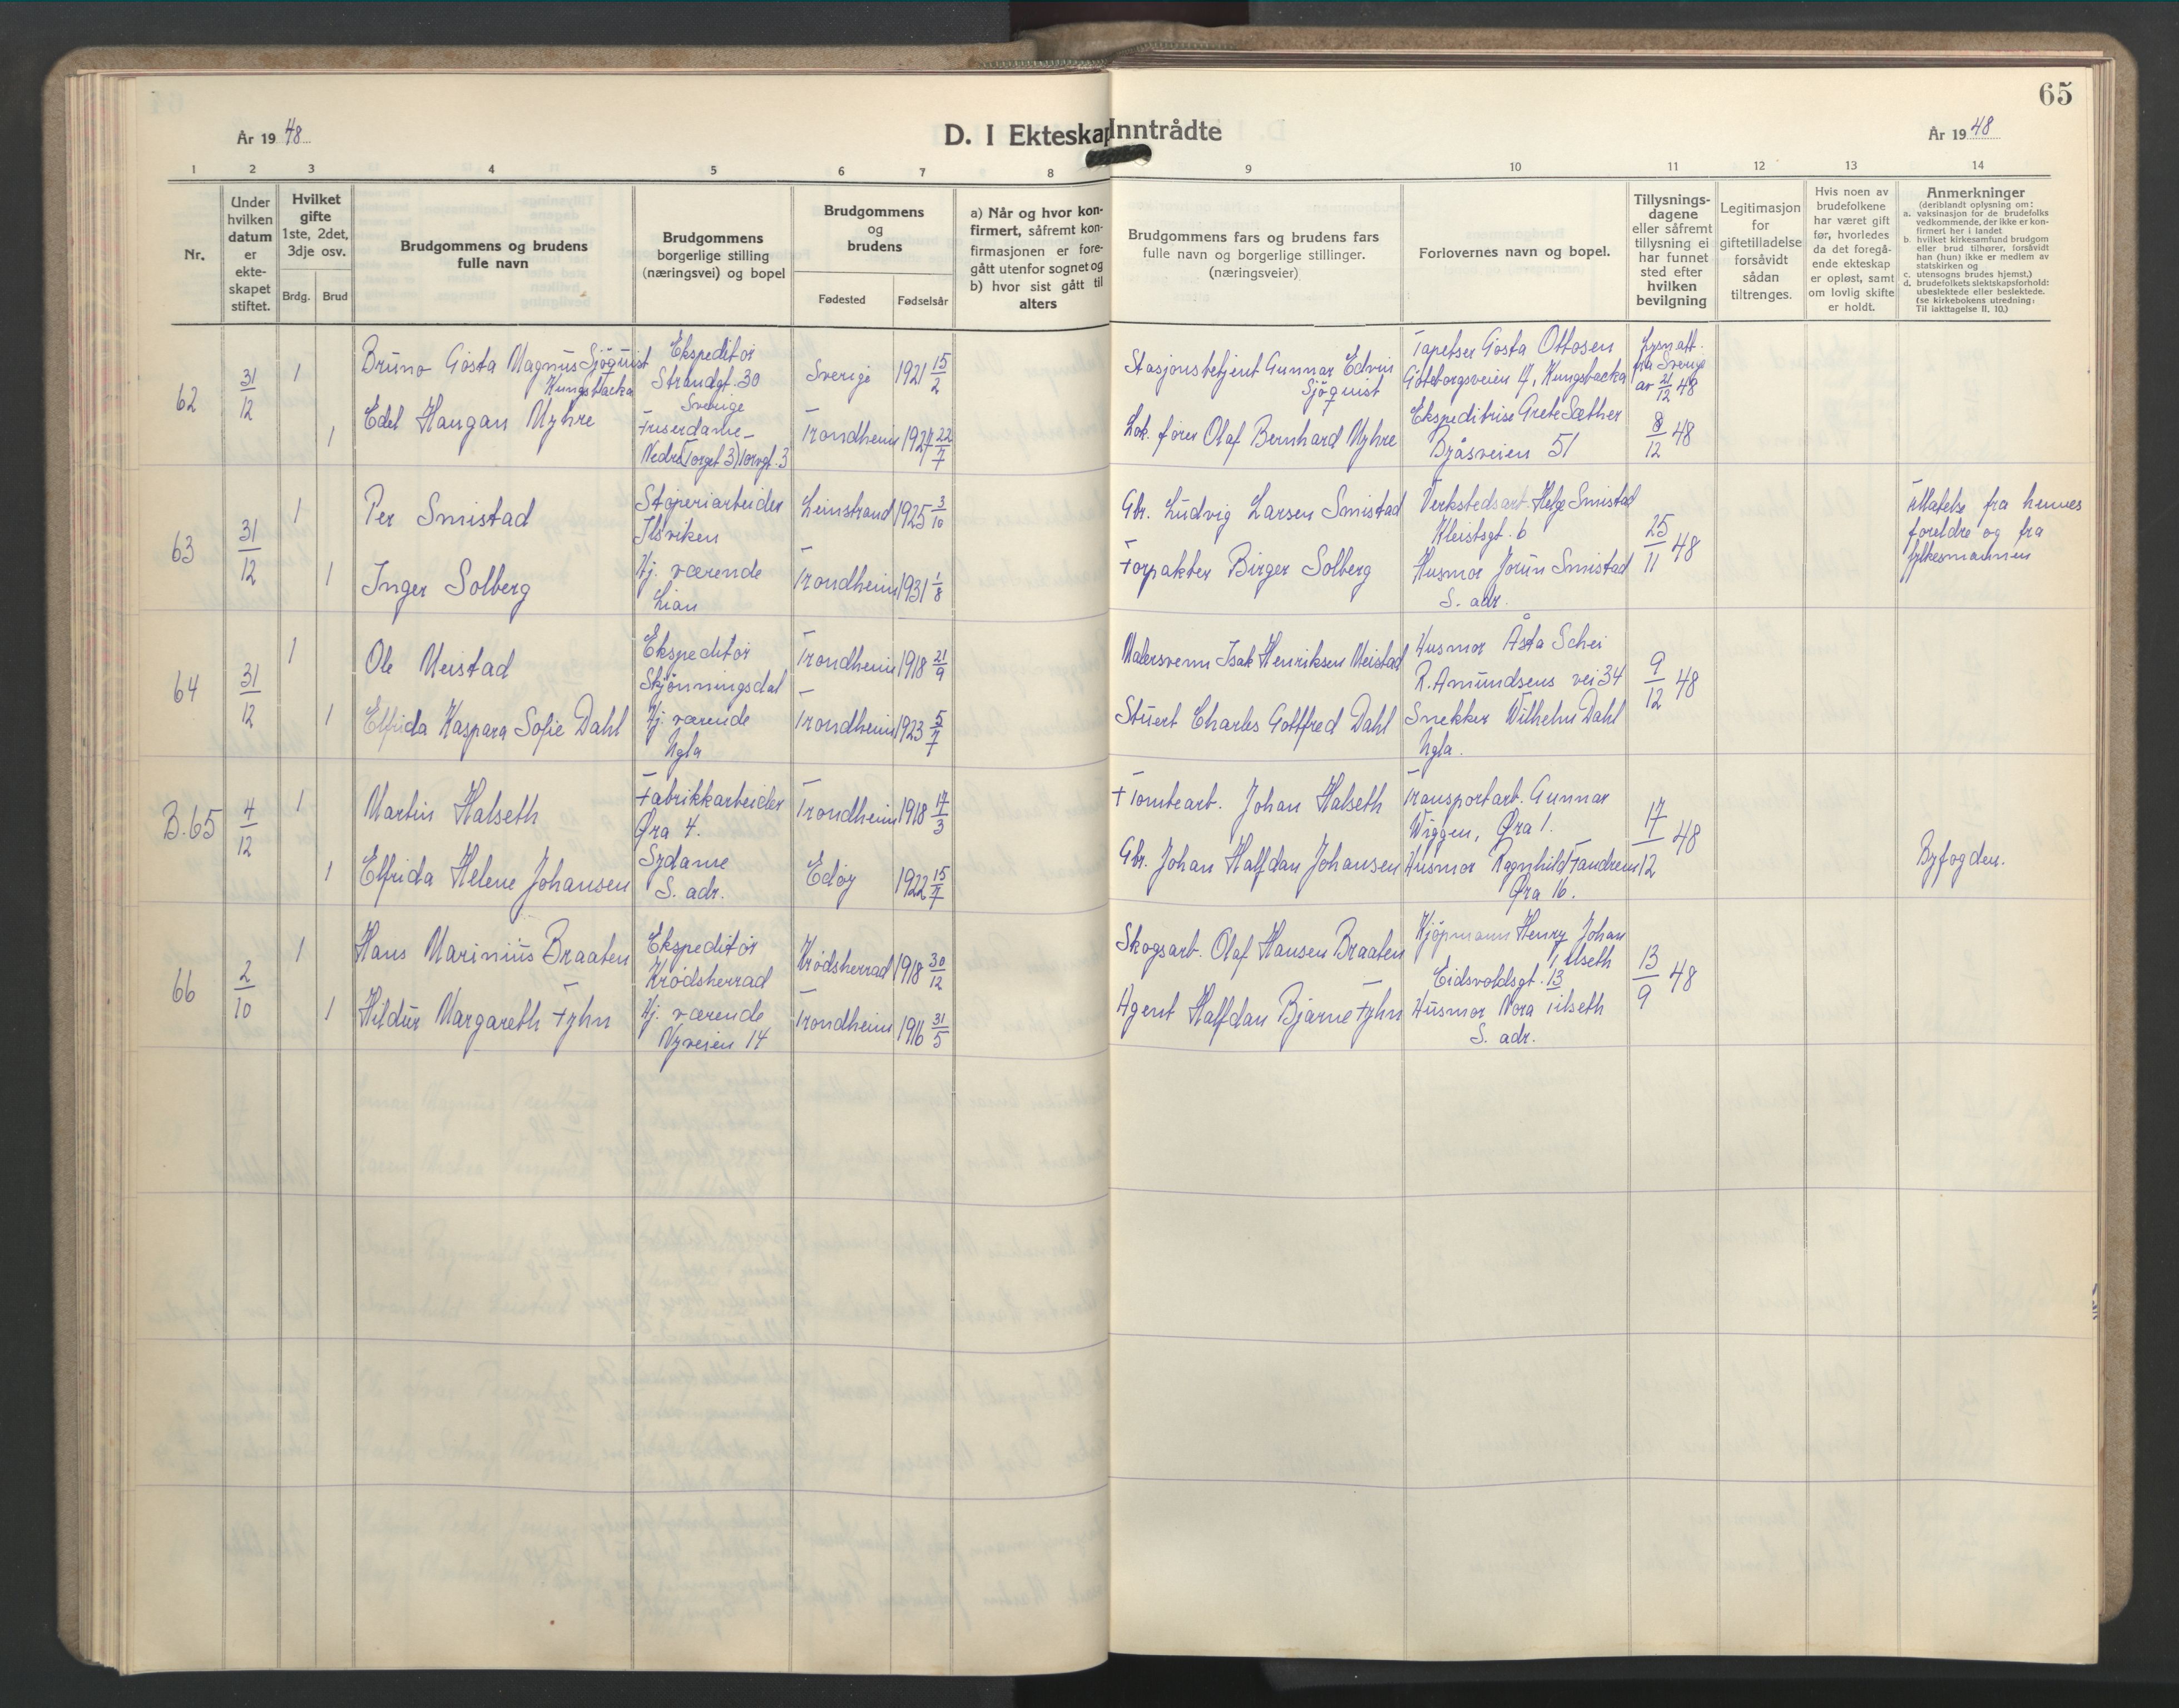 65
År 1948
D. I Ekteskap Inntrådte
År 1948
1 2 3 4 5 6 7 8 9 10 11 12 13 14
Nr.
Under hvilken datum er ekte- skapet stiftet.
Hvilket gifte 1ste, 2det, 3dje osv.
Brdg. Brud
Brudgommens og brudens fulle navn
Brudgommens borgerlige stilling (næringsvei) og bopel
Brudgommens og brudens
Fødested Fødselsår
a) Når og hvor kon-
firmert, såfremt kon-
firmasjonen er fore-
gått utenfor sognet og
b) hvor sist gått til
alters
Brudgommens fars og brudens fars
fulle navn og borgerlige stillinger.
(næringsveier)
Forlovernes navn og bopel.
Tillysnings-
dagene
eller såfremt
tillysning ei
har funnet
sted efter
hvilken
bevilgning
Legitimasjon
for
giftetilladelse
forsåvidt
sådan
tiltrenges.
Hvis noen av
brudefolkene
har været gift
før, hvorledes
da det foregå-
ende ekteskap
er opløst, samt
om lovlig skifte
er holdt.
Anmerkninger
(deriblandt oplysning om:
a. vaksinasjon for de brudefolks
vedkommende, der ikke er kon-
firmert her i landet
b. hvilket kirkesamfund brudgom
eller brud tilhører, forsåvidt
han (hun) ikke er medlem av
statskirken og
c. utensogns brudes hjemst,)
d. brudefolkets slektskapsforhold:
ubeslektede eller beslektede.
(se kirkebokens utredning:
Til iakttagelse II, 10.)
62 31/12 1 Bruno Gösta Magnus Sjöquist
Kungsbacka
Ekspeditør
Strandgt. 30
Sverige
Sverige 1921 15/2
Stasjonsbetjent Gunnar Edvin
Sjöquist
Tapetser Gösta Ottosen
Göteborgsveien 4, Kungsbacka
Lysn.att.
fra Sverige
av 21/12 48
1 Edel Haugan Myhre
Friserdame
Nedre Torget 3) Torvgt. 3
Trondheim 1927 22/7
Lok. fører Olaf Bernhard Myhre
Ekspeditrise Grete Sæther
Byåsveien 51
8/12 48
63 31/12 1 Per Smistad
Støperiarbeider
Ilsviken
Leinstrand 1925 3/10
Gbr. Ludvig Larsen Smistad
Verkstedsarb. Helge Smistad
Kleistsgt. 6
25/11 48
Tillatelse fra hennes
foreldre og fra
fylkesmannen
1 Inger Solberg
Hj. værende
Lian
Trondheim 1931 1/8
Forpakter Birger Solberg
Husmor Jorun Smistad
S. adr.
64 31/12 1 Ole Meistad
Ekspeditør
Skjönningsdal
Trondheim 1918 21/9
Malersvenn Isak Henriksen Meistad
Husmor Åsta Schei
R. Amundsens vei 34
9/12 48
1 Elfrida Kaspara Sofie Dahl
Hj. værende
Ugla
Trondheim 1923 5/7
Stuert Charles Gottfred Dahl
Snekker Wilhelm Dahl
Ugla.
B.65 4/12 1 Martin Halseth
Fabrikkarbeider
Øra 4.
Trondheim 1918 17/3
Tomtearb. Johan Halseth
Transportarb. Gunnar
Wiggen, Øra 1.
17/12 48
1 Elfrida Helene Johansen
Sydame
S. adr.
Edøy 1922 15/7
Gbr. Johan Halfdan Johansen
Husmor Ragnhild Fandrem
Øra 16.
Byfogden.
66 2/10 1 Hans Marinius Braaten
Ekspeditør
Krødsherrad
Krødsherrad 1918 30/12
Skogsarb. Olaf Hansen Braaten
Kjøpmann Henry Johan
Eidsvoldsgt. 13
13/9 48
1 Hildur Margareth Fyhn
Hj. værende
Nyveien 14
Trondheim 1916 31/5
Agent Halfdan Bjarne Fyhn
Husmor Nora
S. adr.